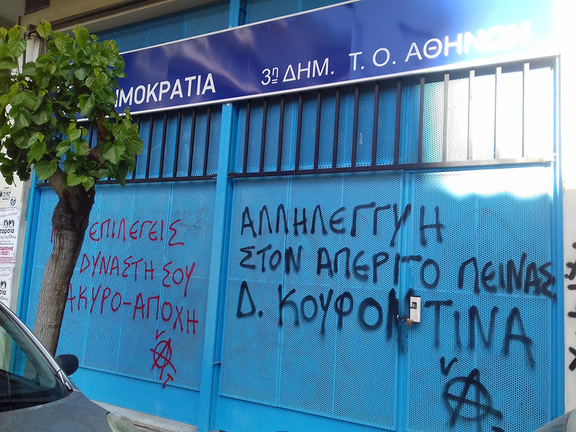 ΗΜΟΚΡΑΤΙΑ 3η ΔΗΜ. Τ. Ο. ΑΘΗΝΩΝ
ΕΠΙΛΕΓΕΙΣ
ΔΥΝΑΣΤΗ ΣΟΥ
ΑΚΥΡΟ-ΑΠΟΧΗ
ΑΛΛΗΛΕΓΓΥΗ
ΣΤΟΝ ΑΠΕΡΓΟ ΠΕΙΝΑΣ
Δ. ΚΟΥΦΟΝΤΙΝΑ